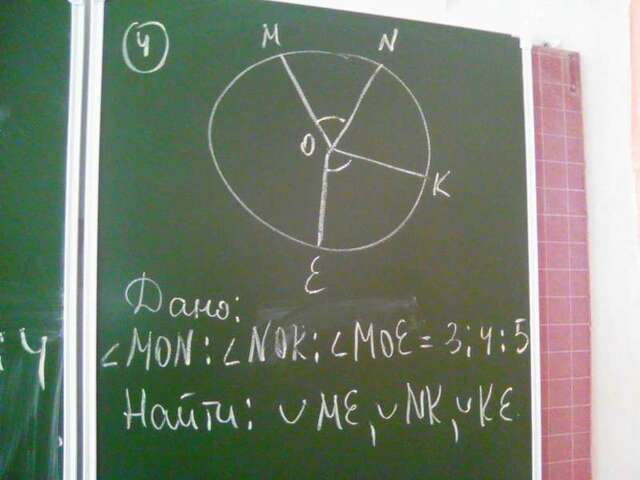 4
M N
O
K
E
Дано:
∠MON:∠NOK:∠MOE=3:4:5
Найти: ∪ME,∪NK,∪KE
:4